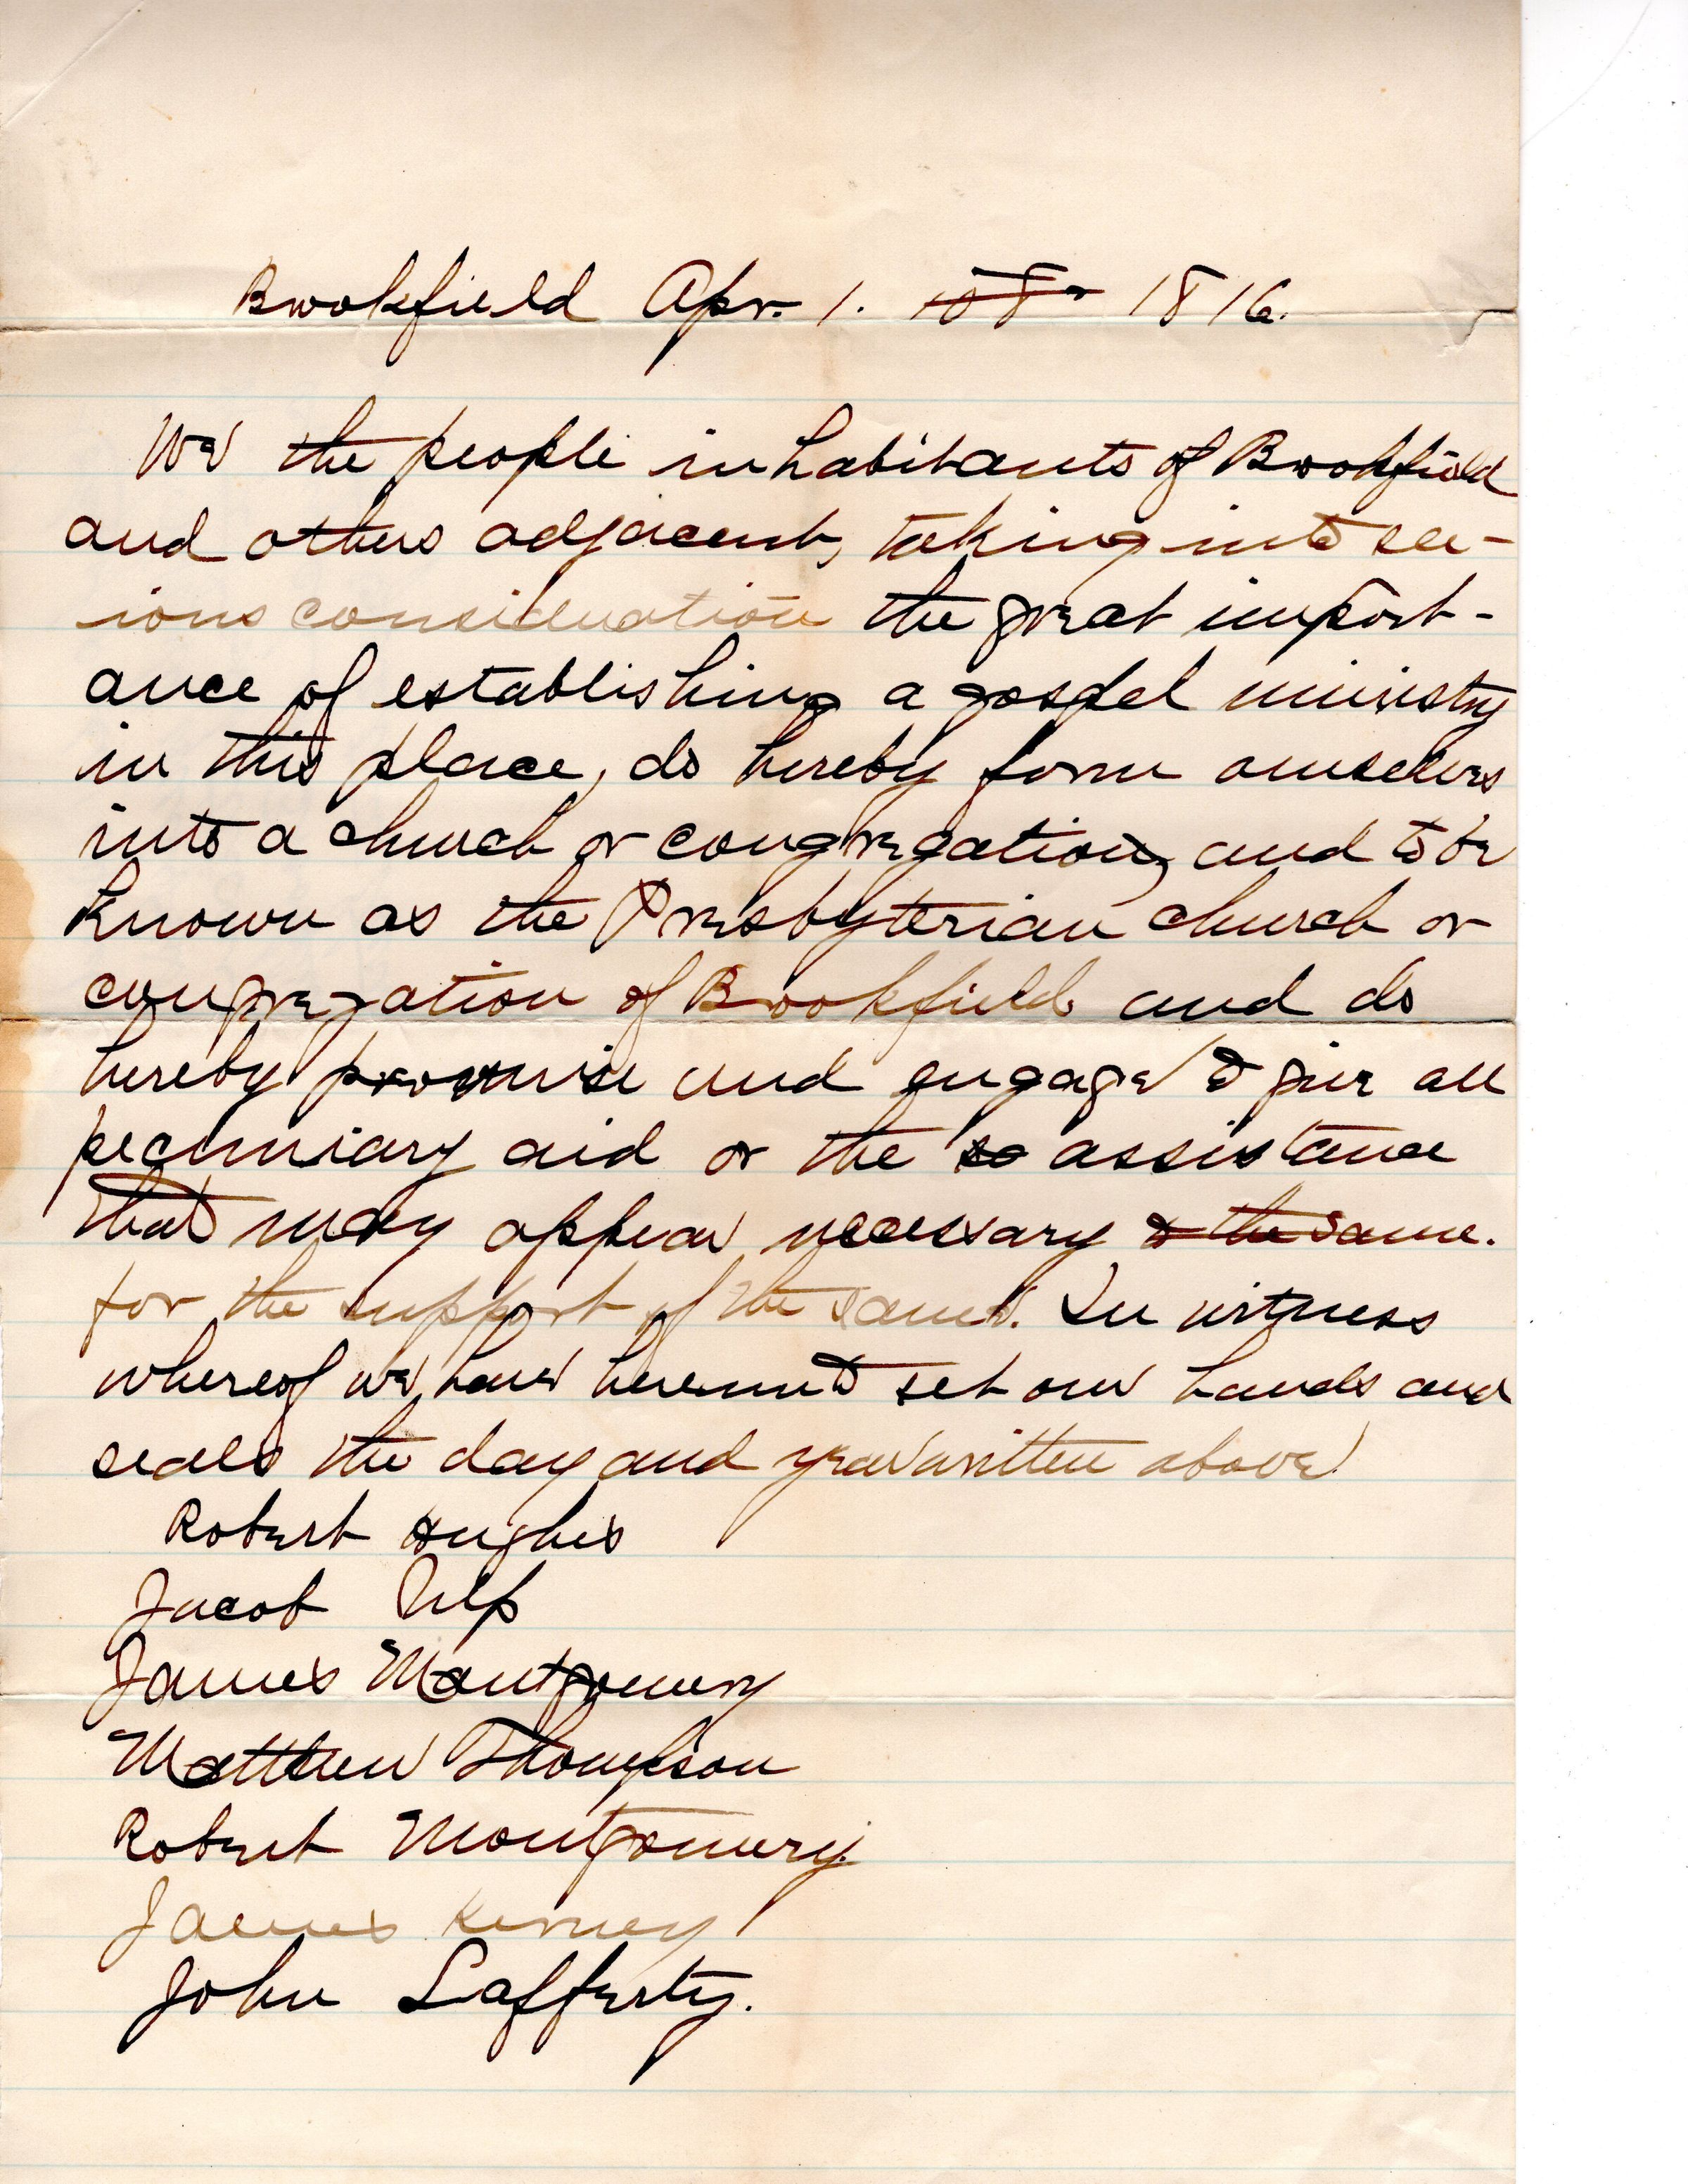 Brookfield Apr. 1. 1816.
We the people inhabitants of Brookfield
and others adjacent, taking into ser-
ious consideration the great import-
ance of establishing a gospel ministry
in this place, do hereby form ourselves
into a church or congregation, and to be
known as the Presbyterian church or
congregation of Brookfield and do
hereby promise and engage to give all
pecuniary aid or the assistance
that may appear necessary to the same.
for the support of the same. In witness
whereof we have hereunto set our hands and
seals the day and year written above
Robert Hughes
Jacob Ulp
James Montgomery
Matthew Thompson
Robert Montgomery.
James Kerney
John Lafferty.